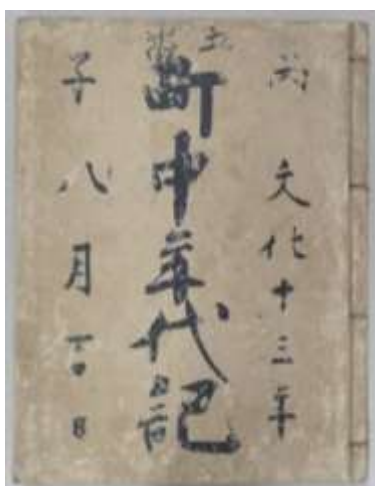 丙 文化十三年
町中年代記
子 八月吉日